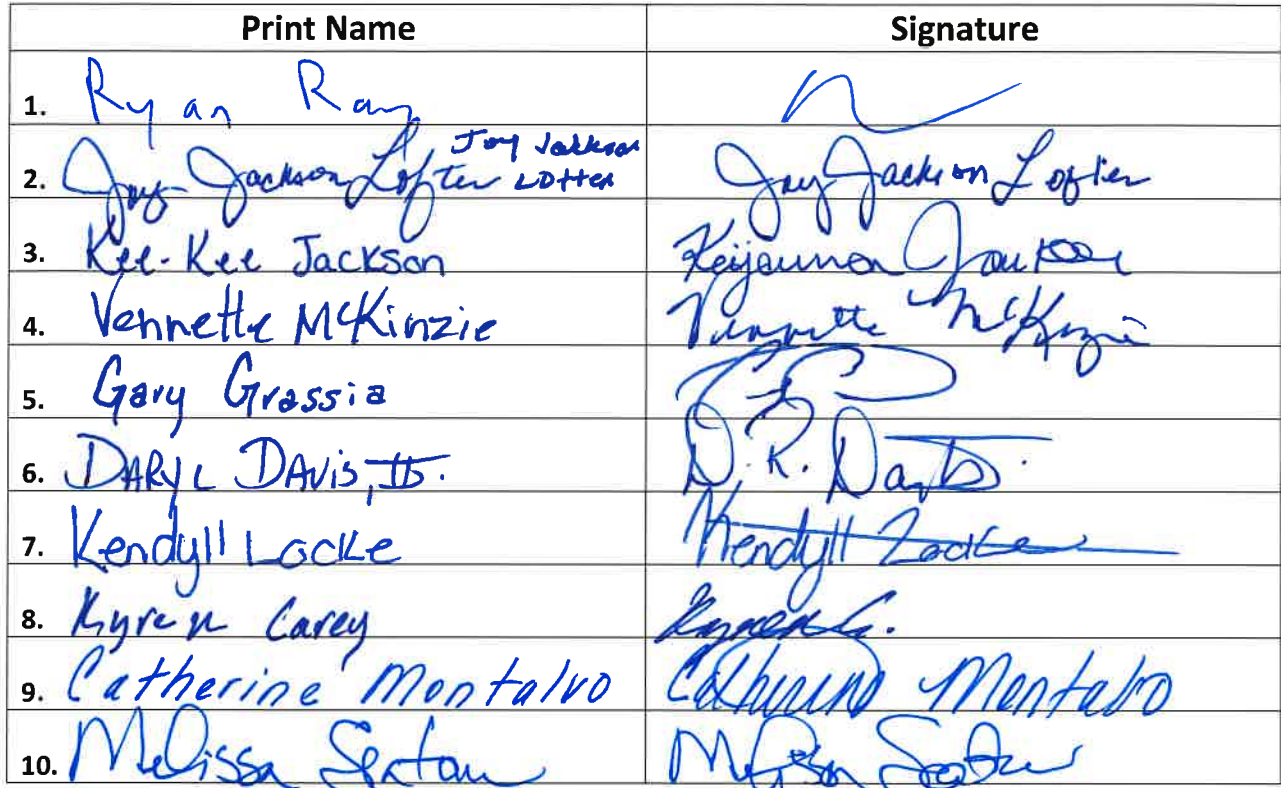 Print Name Signature
1. Ryan Ray
2. Joy Jackson Lofter Joy Jackson Lotter Joy Jackson Lofter
3. Kee-Kee Jackson Keijaunna Jackson
4. Vennette McKinzie Vennette McKinzie
5. Gary Grassia
6. DARYL DAVIS, II. D. R. Davis
7. Kendyll Locke Kendyll Locke
8. Kyren Carey Kyren C.
9. Catherine Montalvo Catherine Montalvo
10. Melissa Sexton Melissa Sexton